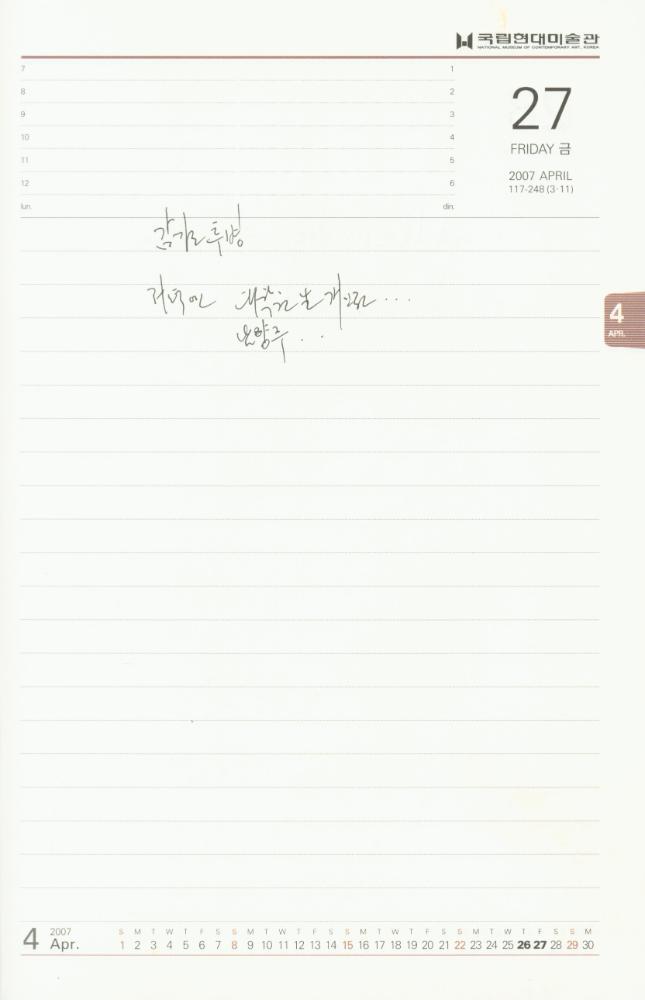 국립현대미술관
NATIONAL MUSEUM OF CONTEMPORARY ART, KOREA
7 1
8 2
9 3
10 4
11 5
12 6
lun. din.
27
FRIDAY 금
2007 APRIL
117-248 (3·11)
감기로 투병
저녁에
4
APR.
4 2007 Apr.
S M T W T F S S M T W T F S S M T W T F S S M T W T F S S M
1 2 3 4 5 6 7 8 9 10 11 12 13 14 15 16 17 18 19 20 21 22 23 24 25 26 27 28 29 30